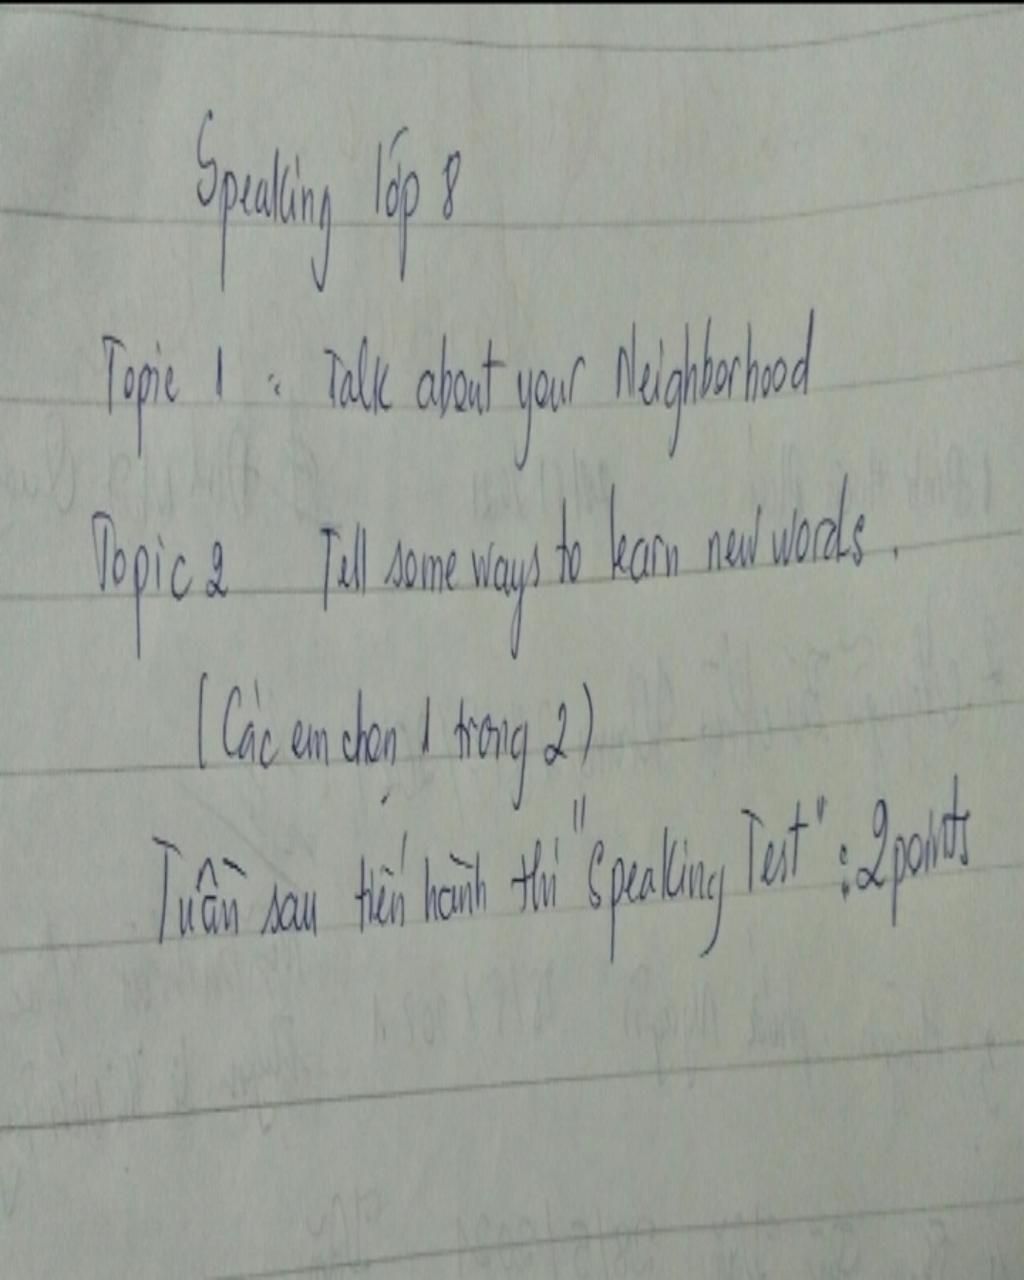 Speaking lớp 8
Topic 1 : Talk about your Neighborhood
Topic 2 Tell some ways to learn new words.
(Các em chọn 1 trong 2)
Tuần sau tiến hành thi "Speaking Test" : 2 points